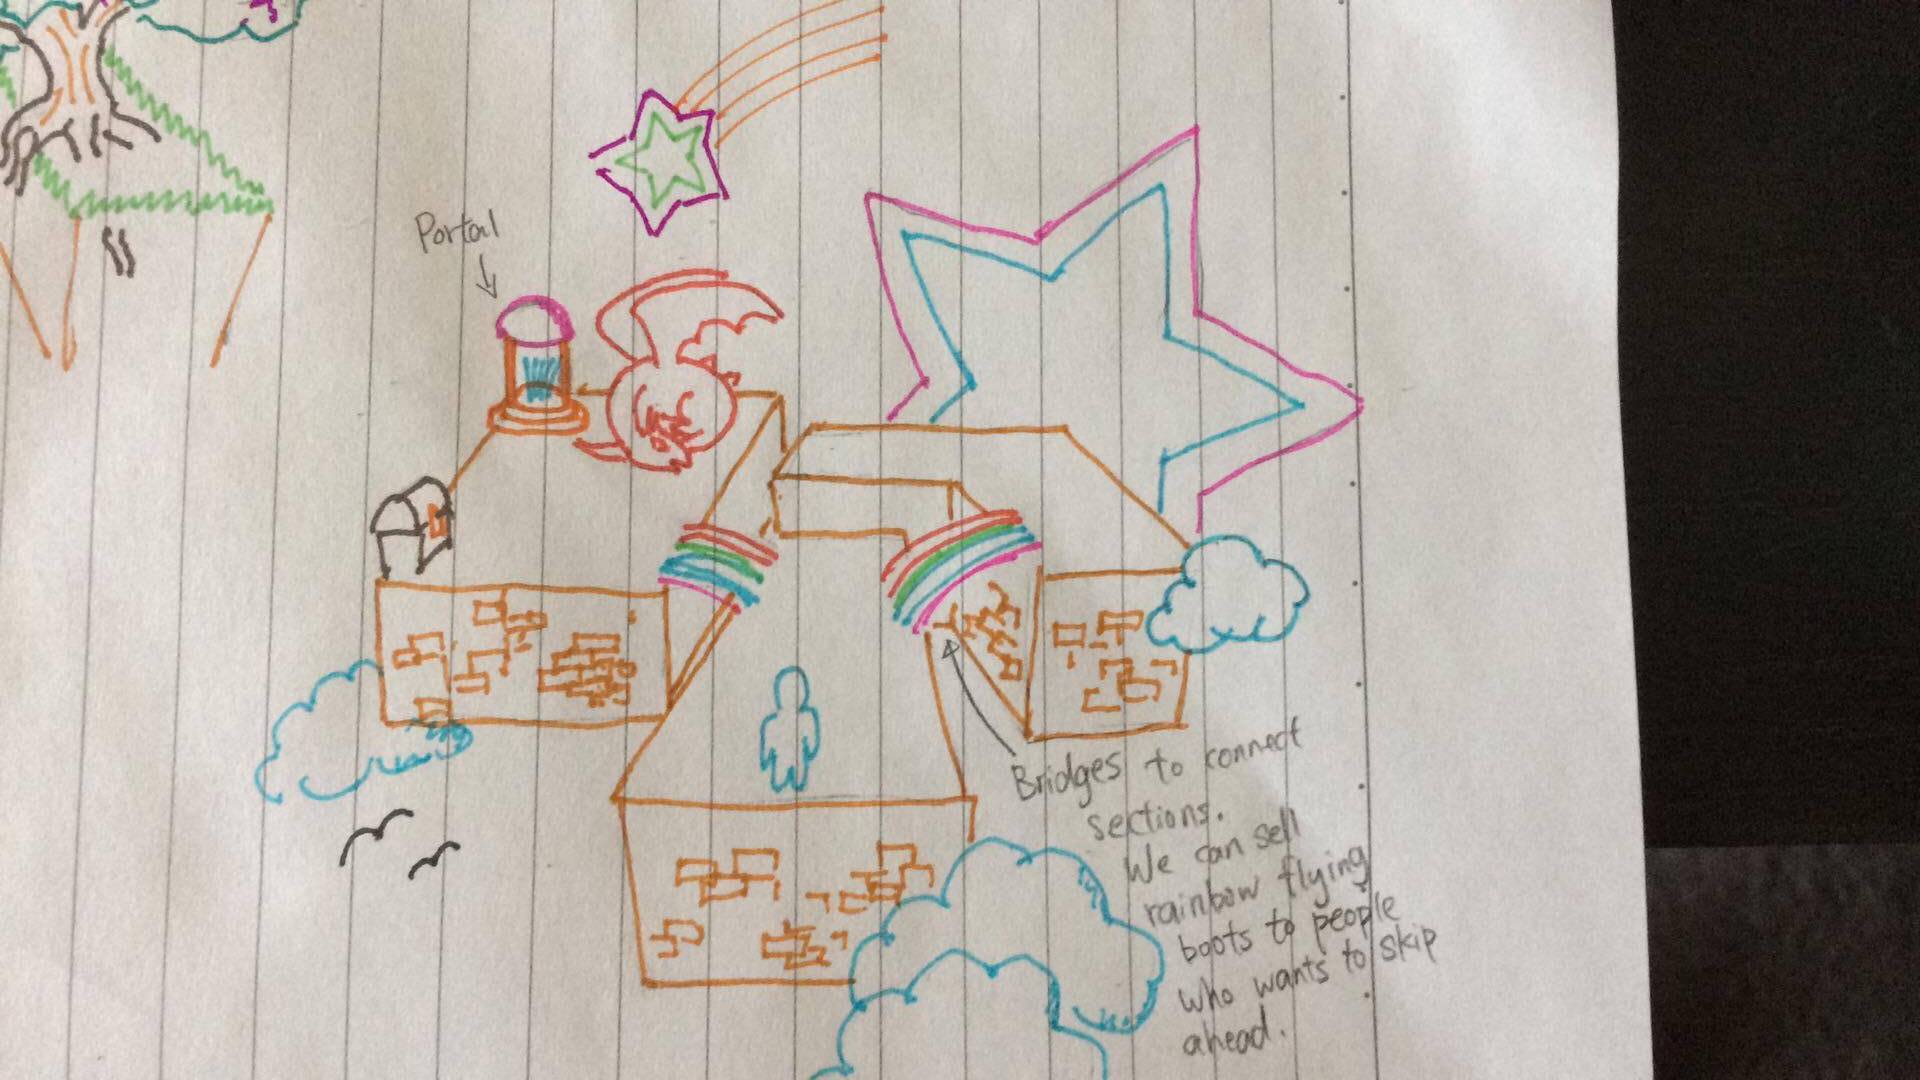 Portal
Bridges to connect
sections.
We can sell
rainbow flying
boots to people
who wants to skip
ahead.